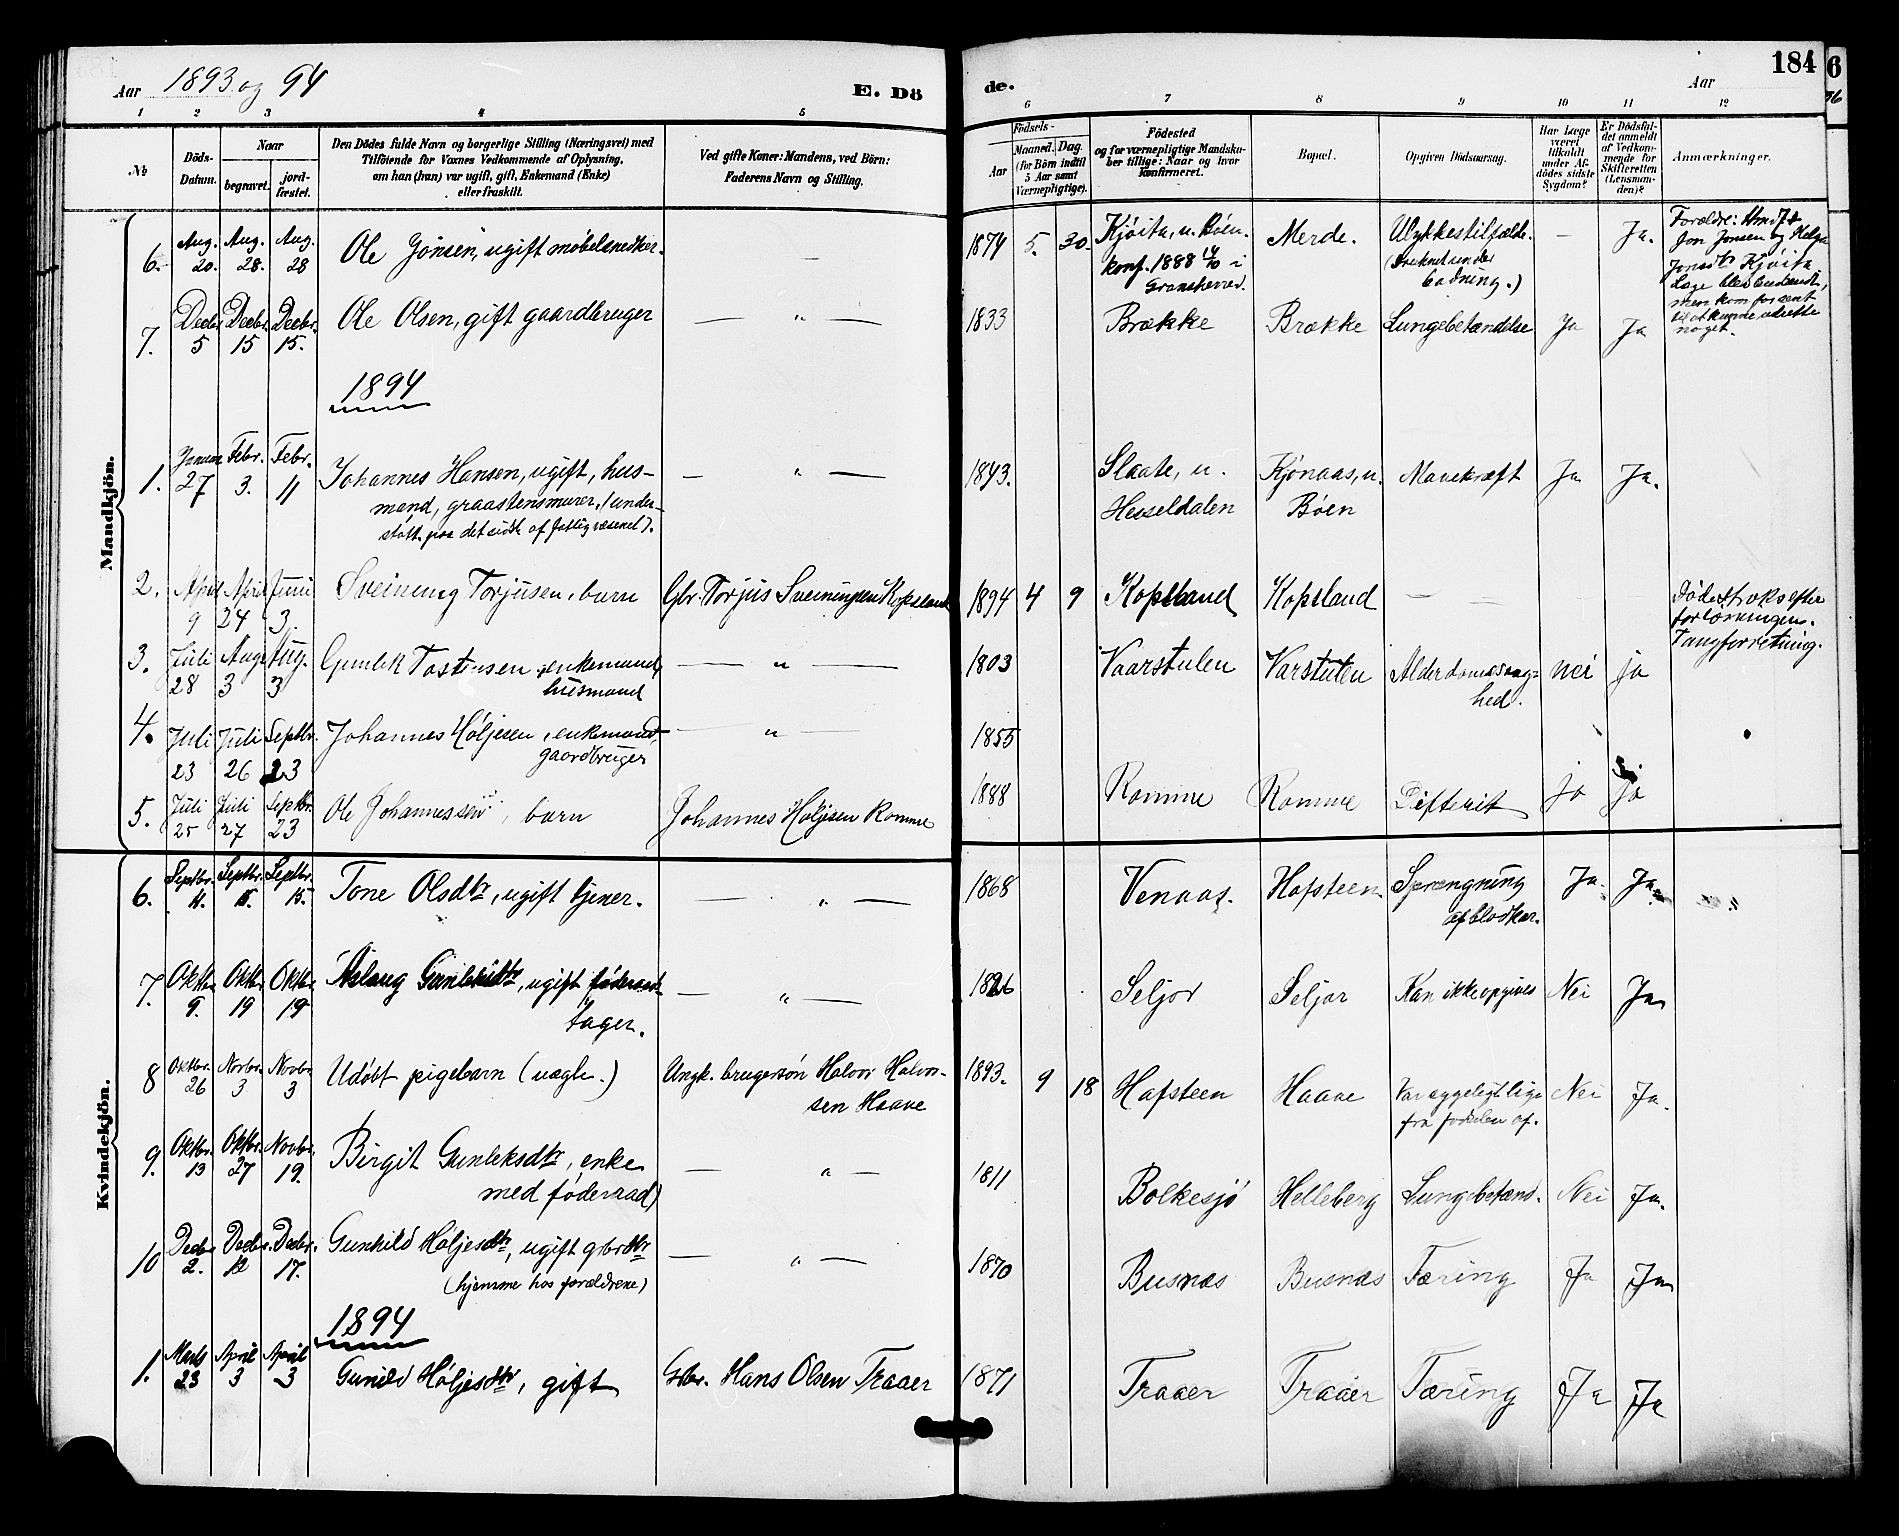 Aar 1893 og 94
E. Dö
de.
Aar
184
6
1 2 3 4 5 6 7 8 9 10 11 12
No
Döds-Datum.
Naar
begravet.
jord-fæstet.
Den Dödes fulde Navn og borgerlige Stilling (Næringsvei) med
Tilföiende for Voxnes Vedkommende af Oplysning,
om han (hun) var ugift, gift, Enkemand (Enke)
eller fraskilt.
Ved gifte Koner: Mandens, ved Börn:
Faderens Navn og Stilling.
Födsels-
Aar
Maaned. Dag.
(for Börn indtil
5 Aar samt
Værnepligtige).
Födested
og for værnepligtige Mandska-
ber tillige: Naar og hvor
konfirmeret.
Bopæl.
Opgiven Dödsaarsag.
Har Læge
været
tilkaldt
under Af-
dödes sidste
Sygdom?
Er Dödsfal-
det anmeldt
af Vedkom-
mende for
Skifteretten
(Lensman-
den)?
Anmærkninger.
Mandkjön.
6. Aug. 20. Aug. 28. Aug. 28 Ole Jonsen, ugift møbelsnedker. — 1874 5. 30. Kjøita, u. Bøen. konf. 1888 i Gransherred. Merde. Ulykkestilfælde. (Druknet under badning.) — Ja. Forældre:
Jon Jonsen og Helga
Jonsdtr Kjøita
Læge blev hentet,
men kom for sent
til at kunne udrette
noget.
7. Decbr. 5 Decbr. 15 Decbr. 15. Ole Olsen, gift gaardbruger — " — 1833 Brække Brække Lungebetændelse Ja Ja
1894
1. Januar 27 Febr. 3. Febr. 11 Johannes Hansen, ugift, hus-
mand, graastensmurer, (under-
støtt. paa det sidste af fattigvæsenet). — " — 1843. Slaate, u. Hesseldalen Kjønaas, u. Bøen Mavekræft Ja Ja.
2. April 9 April 24 Juni 3. Sveinung Torjusen, barn Gbr. Torjus Sveinungsen Kopsland 1894 4 9 Kopsland Kopsland — — — Døde straks efter
forløsningen.
Tangforretning.
3. Juli 28 Aug. 3 Aug. 3 Gunlek Tostensen, enkemand,
husmand — " — 1803 Vaarstulen Varstulen Alderdomssvag-
hed. nei ja
4. Juli 23 Juli 26 Septbr. 23 Johannes Høljesen, enkemand,
gaardbruger — " — 1855
5. Juli 25 Juli 27 Septbr. 23 Ole Johannessen, barn Johannes Høljesen Romme 1888 Romme Romme Difterit ja ja
Kvindekjön.
6. Septbr. 11. Septbr. 15. Septbr. 15. Tone Olsdtr, ugift tjener. — " — 1868 Venaas. Hafsteen Sprængning
af blodkar. Ja. Ja. "
7. Oktbr. 9. Oktbr. 19 Oktbr. 19 Aslaug Gunleksdtr, ugift føderaads-
tager. — " — 1826 Seljor Seljor Kan ikke opgives Nei Ja
8 Oktbr. 26 Novbr. 3 Novbr. 3 Udøbt pigebarn (uægte.) Ungk. brugersøn Halvor Halvor-
sen Haave 1893. 9 18 Hafsteen Haave Var sygeligt lige
fra fødselen af. Nei Ja.
9. Oktbr. 13 Oktbr. 27 Novbr. 19. Birgit Gunleksdtr, enke
med føderaad — " — 1811 Bolkesjø Helleberg Lungebetænd. Nei Ja.
10 Decbr. 2. Decbr. 12 Decbr. 17. Gunhild Høljesdtr, ugift gbrdtr
(hjemme hos forældrene) — " — 1870 Busnæs Busnæs Tæring Ja Ja
1894
1. Marts 23 April 3 April 3 Gunild Høljesdtr, gift Gbr. Hans Olsen Traaer 1871 Traaer Traaer Tæring Ja Ja